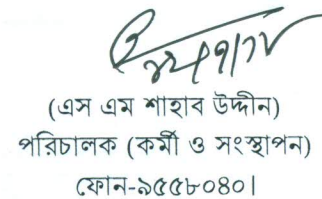 (এস এম শাহাব উদ্দীন)
পরিচালক (কর্মী ও সংস্থাপন)
ফোন-৯৫৫৮০৪০।